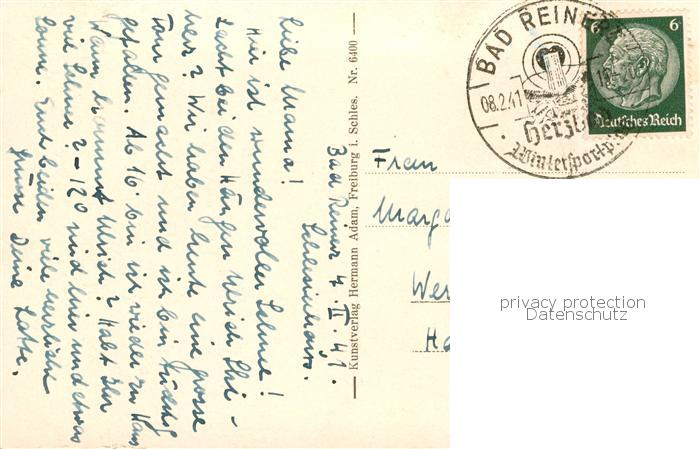 Lehrerinheim.
Bad Reinerz 7. II. 41.
Liebe Mama!
Hier ist wundervoller Schnee!
Lacht bei den Hängen Ulrich Ski-
herz? Wir haben heute eine grosse
Tour gemacht und ich bin tüchtig
gefallen. Ab 16. bin ich wieder zu Haus
Wann kommt Ulrich? Habt Ihr
viel Schnee? -12° sind hier und etwas
Sonne. Euch beiden viele herzliche
Grüsse Deine Lotte.
Kunstverlag Hermann Adam, Freiburg i. Schles. Nr. 6400
BAD REINERZ
08.2.41
Herzb
Wintersportpl
6 6
Deutsches Reich
Frau
Marga
We
Ha
privacy protection
Datenschutz